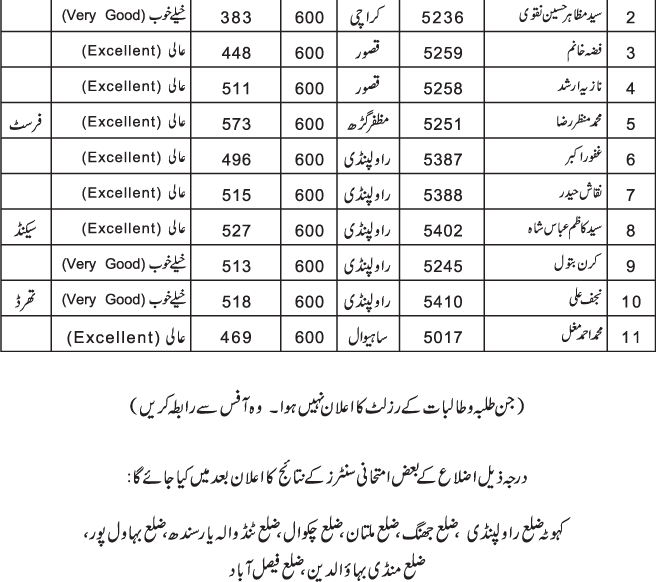 2 سید مظاہر حسین نقوی 5236 کراچی 600 383 خیلے خوب (Very Good)
3 فضہ خانم 5259 قصور 600 448 عالی (Excellent)
4 نازیہ ارشد 5258 قصور 600 511 عالی (Excellent)
5 محمد منظر رضا 5251 مظفر گڑھ 600 573 عالی (Excellent) فرسٹ
6 غفور اکبر 5387 راولپنڈی 600 496 عالی (Excellent)
7 نقاش حیدر 5388 راولپنڈی 600 515 عالی (Excellent)
8 سید کاظم عباس شاہ 5402 راولپنڈی 600 527 عالی (Excellent) سیکنڈ
9 کرن بتول 5245 راولپنڈی 600 513 خیلے خوب (Very Good)
10 نجف علی 5410 راولپنڈی 600 518 خیلے خوب (Very Good) تھرڈ
11 محمد احمد مغل 5017 ساہیوال 600 469 عالی (Excellent)
(جن طلبہ و طالبات کے رزلٹ کا اعلان نہیں ہوا۔ وہ آفس سے رابطہ کریں)
درجہ ذیل اضلاع کے بعض امتحانی سنٹرز کے نتائج کا اعلان بعد میں کیا جائے گا:
کہوٹہ ضلع راولپنڈی ,ضلع جھنگ,ضلع ملتان,ضلع چکوال,ضلع ٹنڈ والہ یار سندھ,ضلع بہاول پور,
ضلع منڈی بہاؤالدین,ضلع فیصل آباد